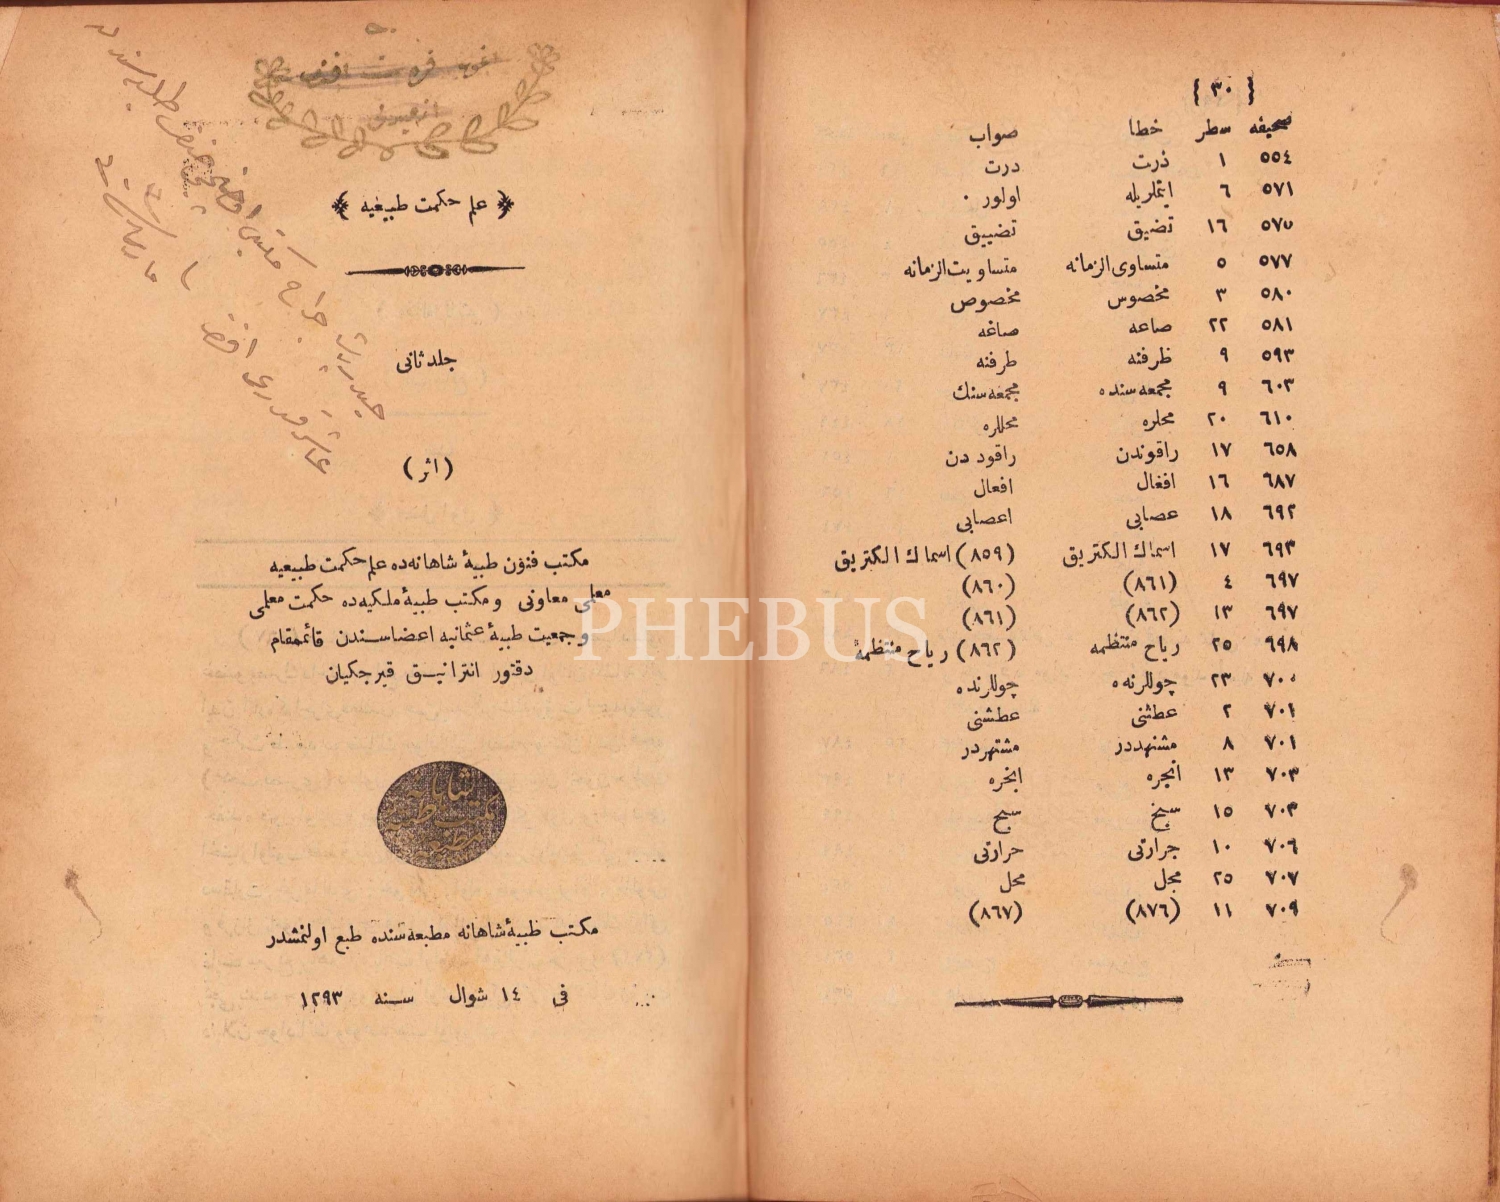 { ٣٠ }
صحیفه سطر خطا صواب
٥٥٤ ١ ذرت درت
٥٧١ ٦ ایتملریله اولور
٥٧٥ ١٦ تضیق تضییق
٥٧٧ ٥ متساوی‌الزمانه متساویت‌الزمانه
٥٨٠ ٣ مخصوس مخصوص
٥٨١ ٢٢ صاعه صاغه
٥٩٣ ٩ ظرفنه طرفنه
٦٠٣ ٩ مجمعه‌سنده مجمعه‌سنك
٦١٠ ٢٠ محلره محللره
٦٥٨ ١٧ راقوندن راقوددن
٦٨٧ ١٦ افغال افعال
٦٩٢ ١٨ عصابی اعصابی
٦٩٣ ١٧ اسماك الكتریق (٨٥٩) اسماك الكتریق
٦٩٧ ٤ (٨٦١) (٨٦٠)
٦٩٧ ١٣ (٨٦٢) (٨٦١)
٦٩٨ ٢٥ ریاح منتظمه (٨٦٢) ریاح منتظمۀ
٧٠٠ ٢٣ چوللرنه‌ه چوللرنده
٧٠١ ٢ عطثنی عطشنی
٧٠١ ٨ مشنهددر مشتهردر
٧٠٣ ١٣ انجره ابخره
٧٠٣ ١٥ سبخ سبح
٧٠٦ ١٠ جرارتی حرارتی
٧٠٧ ٢٥ مجل محل
٧٠٩ ١١ (٨٧٦) (٨٦٧)
علم حكمت طبیعیه
جلد ثانی
(اثر)
مكتب فنون طبیۀ شاهانه‌ده علم حكمت طبیعیه
معلمی معاونی و مكتب طبیۀ ملكیه‌ده حكمت معلمی
و جمعیت طبیۀ عثمانیه اعضاسندن قائممقام
دقتور انترانیق قیرجكیان
مكتب طبیۀ شاهانه مطبعه‌سنده طبع اولنمشدر
فی ١٤ شوال سنه ١٢٩٣
PHEBUS